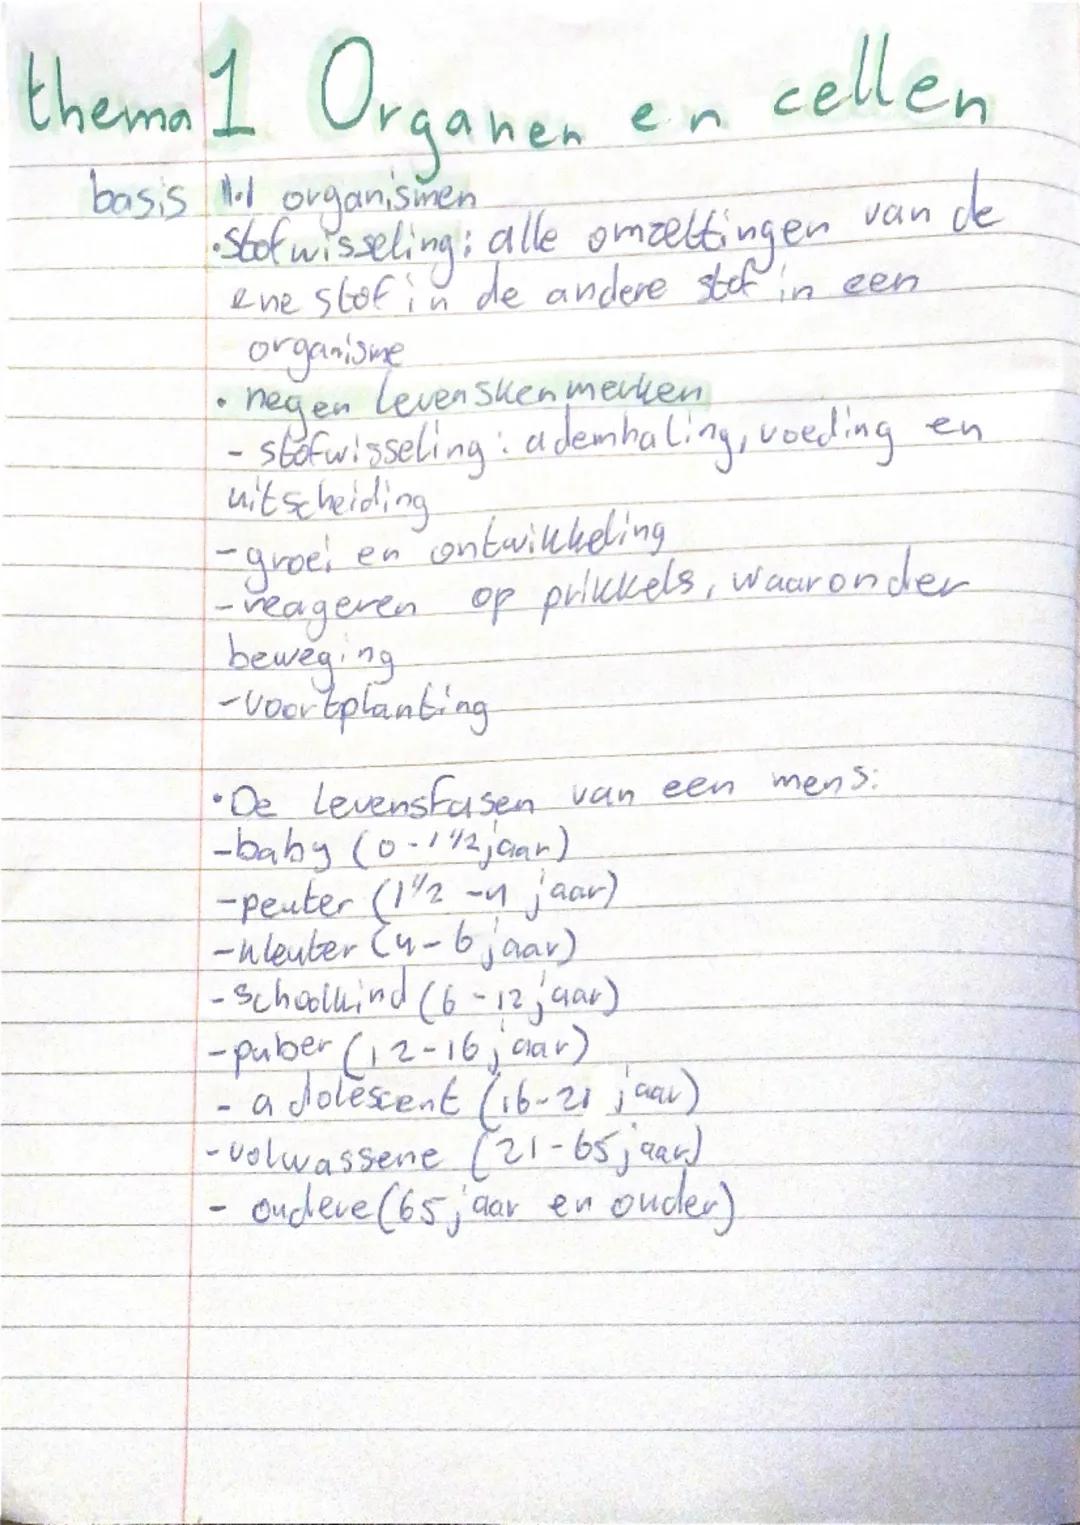 thema 1 Organen en cellen
basis 1.1 organismen
•Stofwisseling: alle omzettingen van de
ene stof in de andere stof in een
organisme
• negen levenskenmerken
- stofwisseling: ademhaling, voeding en
uitscheiding
-groei en ontwikkeling
-reageren op prikkels, waaronder
beweging
-voortplanting
•De levensfasen van een mens:
-baby (0-1 1/2 jaar)
-peuter (1 1/2 -4 jaar)
-kleuter (4-6 jaar)
-schoolkind (6-12 jaar)
-puber (12-16 jaar)
- adolescent (16-21 jaar)
-volwassene (21-65 jaar)
- oudere (65 jaar en ouder)